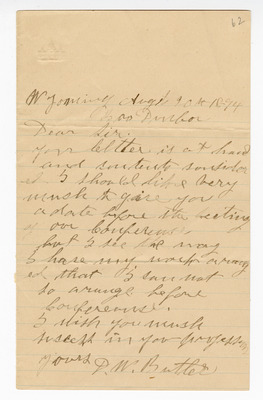 62
Wyoming Aug't 10th 1894
Geo Dunbar
Dear Sir.
Your letter is at hand
and contents consider
ed. I should like very
much to give you
a date before the meeting
of our Conference
but I see no way
I have my work arrang
ed that I can not
so arange before
Conference.
I wish you much
success in your profession
Yours D. W. Butler